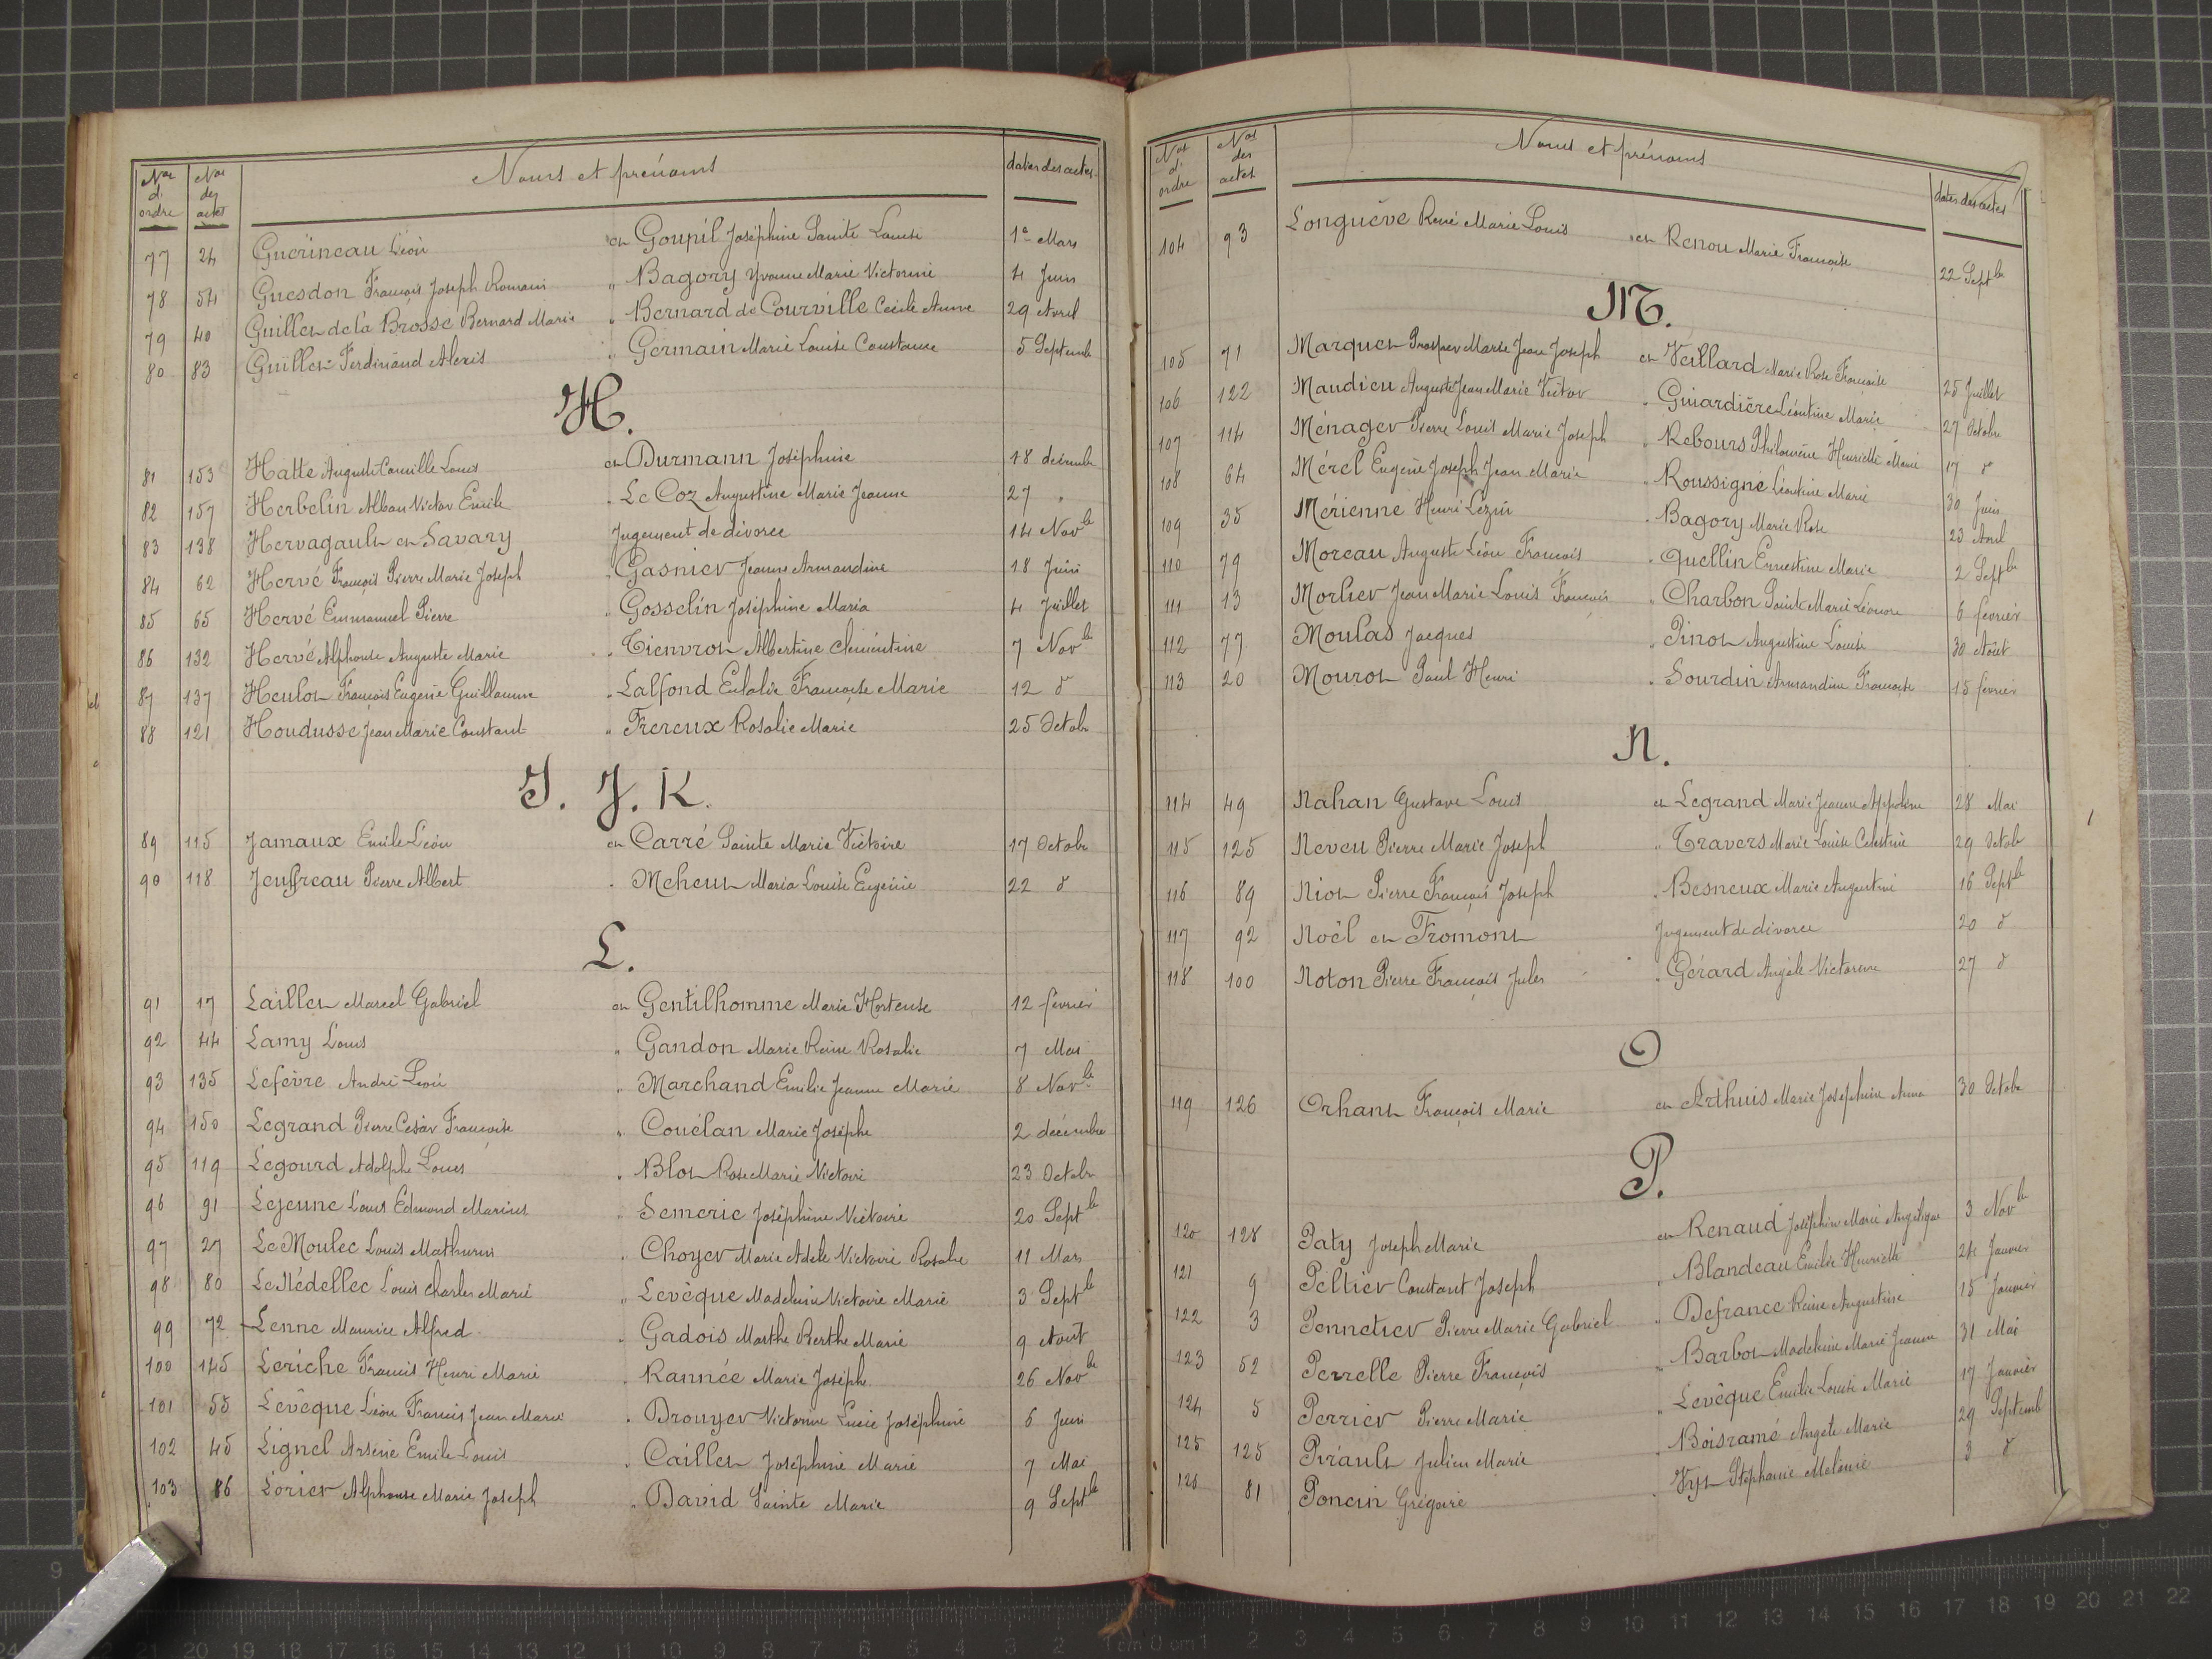 Nos d'ordre Nos des actes Noms et prénoms dates des actes
77 24 Guérineau Léon et Goupil Joséphine Sainte Louise 1er Mars
78 54 Guesdon François Joseph Romain " Bagory Yvonne Marie Victorine 4 Juin
79 40 Guillet de la Brosse Bernard Marie " Bernard de Courville Cécile Anne 29 Avril
80 83 Guillet Ferdinand Alexis " Germain Marie Louise Constance 5 Septemb
H.
81 153 Hatte Auguste Camille Louis et Durmann Joséphine 18 décemb
82 157 Herbelin Alban Victor Emile " Le Coz Augustine Marie Jeanne 27 "
83 138 Hervagault et Savary Jugement de divorce 14 Novbre
84 62 Hervé François Pierre Marie Joseph " Gasnier Jeanne Armandine 18 Juin
85 65 Hervé Emmanuel Pierre " Gosselin Joséphine Maria 4 Juillet
86 132 Hervé Alphonse Auguste Marie " Tienvrot Albertine Clémentine 7 Novbre
87 137 Heulot François Eugène Guillaume " Lalfond Eulalie Françoise Marie 12 d
88 121 Houdusse Jean Marie Constant " Frereux Rosalie Marie 25 Octobr
I. J. K.
89 115 Jamaux Emile Léon et Carré Sainte Marie Victoire 17 Octobr
90 118 Jeuffreau Pierre Albert " Meheut Maria Louise Eugénie 22 d
L.
91 17 Laillet Marcel Gabriel et Gentilhomme Marie Hortense 12 février
92 44 Lamy Louis " Gandon Marie Reine Rosalie 7 Mai
93 135 Lefèvre André Léon " Marchand Emilie Jeanne Marie 8 Novbre
94 150 Legrand Pierre César Françoise " Couélan Marie Josèphe 2 décembre
95 119 Legourd Adolphe Louis " Blot Rose Marie Victoire 23 Octobr
96 91 Lejeune Louis Edmond Marius " Semerie Joséphine Victoire 20 Septbre
97 27 Le Moulec Louis Mathurin " Choyer Marie Adèle Victoire Rosalie 11 Mars
98 80 Le Nédellec Louis Charles Marie " Levêque Madeleine Victoire Marie 3 Septbre
99 72 Lenne Maurice Alfred " Gadois Marthe Berthe Marie 9 Août
100 145 Leriche Francis Henri Marie " Rannée Marie Josèphe 26 Novbre
101 55 Levêque Léon Francis Jean Marie " Drouyer Victorine Lucie Joséphine 6 Juin
102 45 Lignel Arsène Emile Louis " Caillet Joséphine Marie 7 Mai
103 86 Lorier Alphonse Marie Joseph " David Sainte Marie 9 Septbre
Nos d'ordre Nos des actes Noms et prénoms dates des actes
104 93 Longuève René Marie Louis et Renou Marie Françoise 22 Septbre
M.
105 71 Marquet Prosper Marie Jean Joseph et Veillard Marie Rose Françoise 25 Juillet
106 122 Maudieu Auguste Jean Marie Victor " Guiardière Léontine Marie 27 Octobre
107 114 Ménager Pierre Louis Marie Joseph " Rebours Philomène Henriette Marie 17 d
108 64 Mérel Eugène Joseph Jean Marie " Roussigné Léontine Marie 30 Juin
109 35 Mérienne Henri Lezin " Bagory Marie Rose 23 Avril
110 79 Moreau Auguste Léon François " Quellin Ernestine Marie 2 Septbre
111 13 Morlier Jean Marie Louis François " Charbon Sainte Marie Léonore 6 février
112 77 Moulas Jacques " Pinot Augustine Louise 30 Août
113 20 Mourot Paul Henri " Sourdin Armandine Françoise 15 février
N.
114 49 Nahan Gustave Louis et Legrand Marie Jeanne Appoline 28 Mai
115 125 Neveu Pierre Marie Joseph " Travers Marie Louise Celestine 29 Octob
116 89 Niot Pierre François Joseph " Besneux Marie Augustine 16 Septbre
117 92 Noël et Fromont Jugement de divorce 20 d
118 100 Noton Pierre François Jules " Gérard Angèle Victorine 27 d
O
119 126 Orhant François Marie et Arthuis Marie Joséphine Anna 30 Octobre
P.
120 128 Paty Joseph Marie et Renaud Joséphine Marie Angélique 3 Novbre
121 9 Peltier Constant Joseph " Blandeau Emilie Henriette 24 Janvier
122 3 Pennetier Pierre Marie Gabriel " Defrance Reine Augustine 15 Janvier
123 52 Perrelle Pierre François " Barbot Madeleine Marie Jeanne 31 Mai
124 5 Perrier Pierre Marie " Levêque Emilie Louise Marie 17 Janvier
125 125 Pirault Julien Marie " Boisramé Angèle Marie 29 Septemb
126 81 Poncin Grégoire Stéphanie Mélanie 3 d